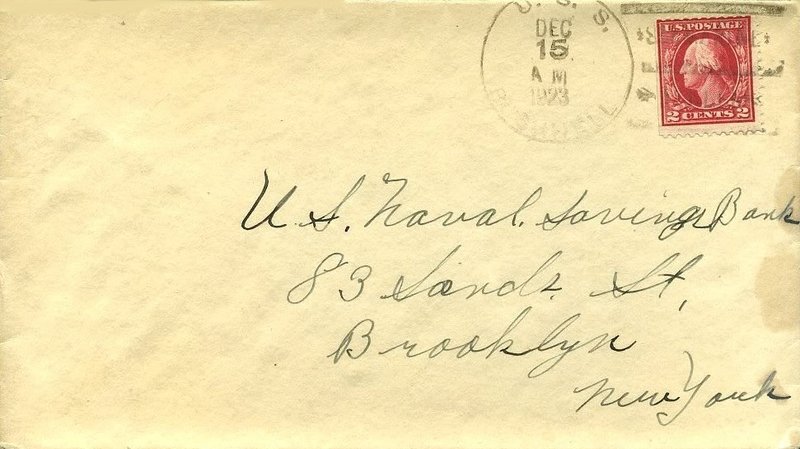 U. S. S.
DEC
15
A M
1923
U.S. POSTAGE
2 CENTS 2
U.S. Naval. Savings Bank
83 Sands. St,
Brooklyn
New York